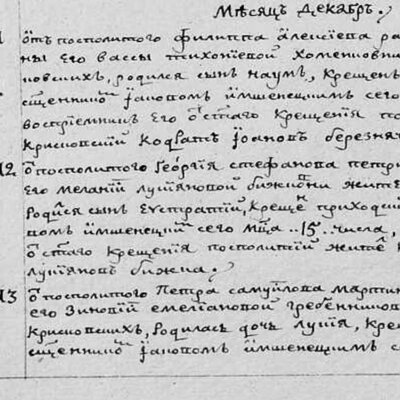 Мѣсяцъ Декабръ.
1 ѿ посполитого филиппа алеѯіева ра
ны его вассы тихоніевой хоменковни
новскихъ, родился сынъ наумъ, крещенъ
сщенникомъ Іаковомъ Имшенецкимъ сего
воспріемникъ его ѿ стаго крещенія по
крисковскій кодратъ Іоановъ березня
12 ѿ посполитого Георгія стефанова петри
его меланіи лукіяновой бижковни жите
родися сынъ еустратій, крещен приходски
комъ имшенецкимъ сего мца 15. числа,
ѿ стаго крещенія посполитій жите
лукіяновъ бижка.
13 ѿ посполитого Петра самуилова мартин
его зиновій емеліановой гребенников
крисковскихъ, родиласъ дочь лукія, кре
сщенникомъ Іаковомъ Имшенецкимъ с